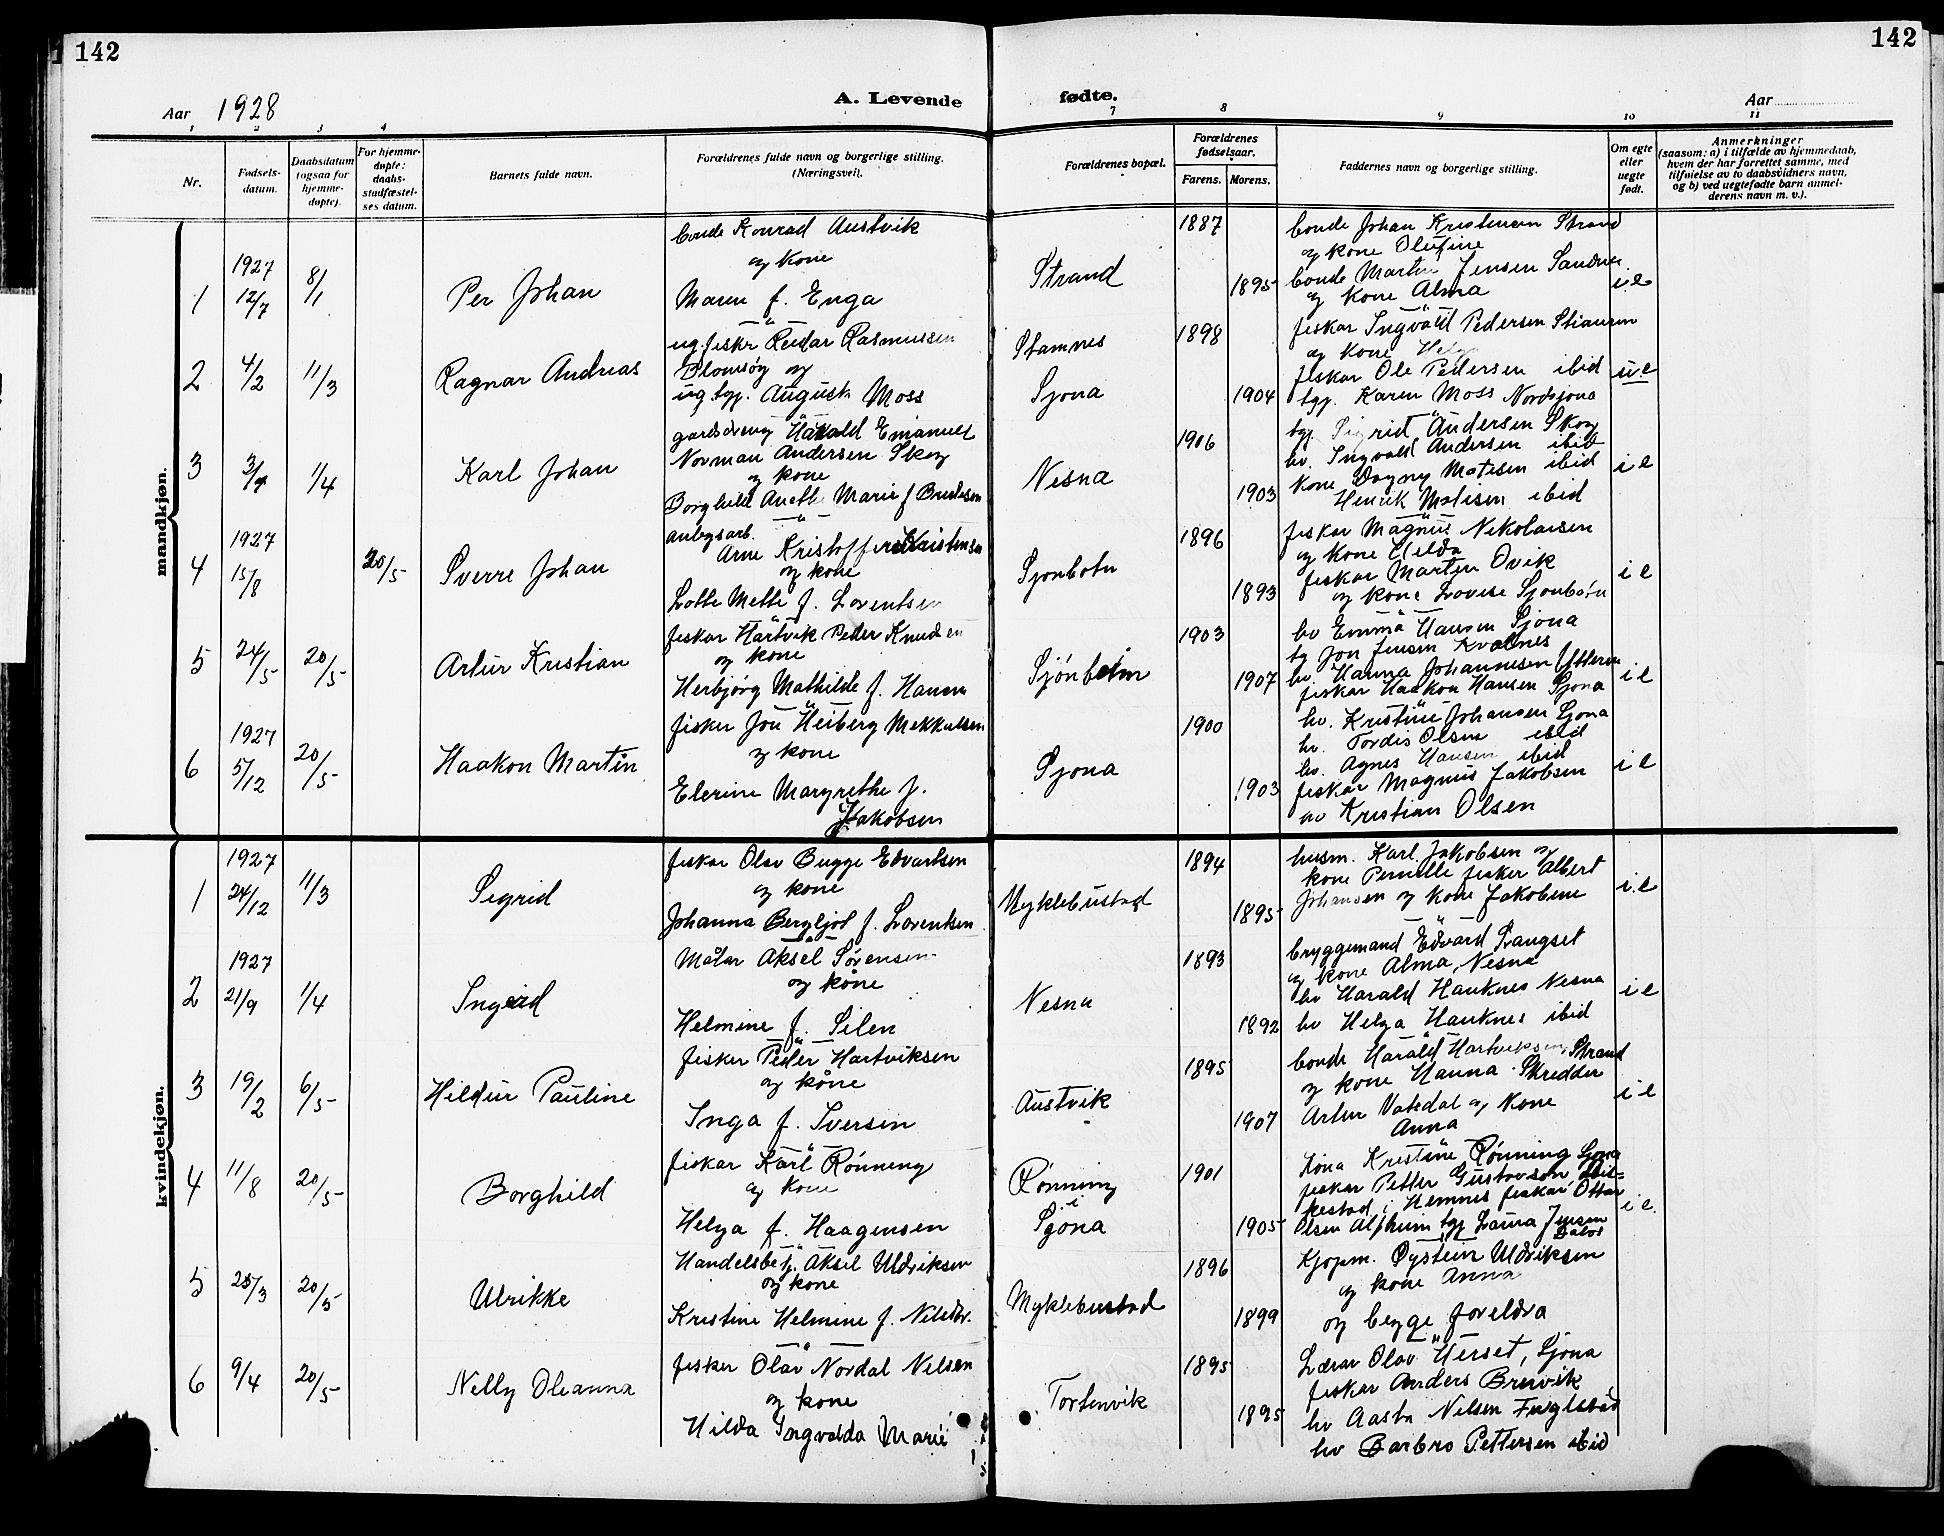 142
142
Aar 1928
A. Levende
fødte.
Aar
1 2 3 4
7 8 9 10 11
Nr.
Fødsels-
datum.
Daabsdatum
(ogsaa for
hjemme-
døpte).
For hjemme-
døpte:
daabs-
stadfæstel-
ses datum.
Barnets fulde navn.
Forældrenes fulde navn og borgerlige stilling.
(Næringsvei).
Forældrenes bopæl.
Forældrenes
fødselsaar.
Farens. Morens.
Faddernes navn og borgerlige stilling.
Om egte
eller
uegte
født.
Anmerkninger
(saasom: a) i tilfælde av hjemmedaab,
hvem der har forrettet samme, med
tilføielse av to daabsvidners navn,
og b) ved uegtefødte barn anmel-
derens navn m. v.).
mandkjøn.
1
1927
12/7
8/1
Per Johan
bonde Konrad Austvik
og kone
Maren f. Enga
Strand
1887
1895
bonde Johan Kristensen Strand
og kone Olufine
bonde Martin Jensen
og kone Alma
i e
2
4/2
11/3
Ragnar Andreas
ug. fiskr Reidar Rasmussen
og
ug. tyj. Augusta Moss
Stamnes
Sjona
1898
1904
fiskar Ingvald Pedersen
og kone
fiskar Ole Pedersen ibid
tyj. Karen Moss Nordsjona
u e
3
1/4
Karl Johan
gardsdreng Harald Emanuel
Norman Andersen Skog
og kone
Borghild Anette Marie f
Nesna
1906
1903
tyj. Sigrid Andersen Skog
hv. Ingvald Andersen ibid
kone Dagny Matisen ibid
Henrik Matisen ibid
i e
4
1927
15/8
20/5
Sverre Johan
anlegsarb.
Arne Kristoffer Kristensen
og kone
Lotte Mette f. Lorentsen
Sjonbotn
1896
1893
fiskar Magnus Nikolaisen
og kone Hilda
fiskar Martin Ovik
og kone Lovise Sjonbotn
i e
5
24/5
20/5
Artur Kristian
fiskar Hartvik Peder Knudsen
og kone
Herbjørg Mathilde f. Hansen
Sjónbotn
1903
1907
hv Emma Hansen Sjona
Jon Jensen Kvalnes
hv. Hanna Johannesen Ytteren
fiskar Haakon Hansen Sjona
i e
6
1927
5/12
20/5
Haakon Martin
fisker Jon Heiberg
og kone
Elerine Margrethe f.
Jakobsen
Sjona
1900
1903
hv. Kristine Johansen Sjona
hv. Tordis Olsen ibid
hv. Agnes Hansen ibid
fiskar Magnus Jakobsen
av Kristian Olsen
i e
kvindekjøn.
1
1927
24/12
11/3
Sigrid
fiskar Olav Bugge Edvartsen
og kone
Johanna Bergljot f. Lorentsen
Myklebustad
1894
1895
husm. Karl Jakobsen og
kone Pernille fisker Albert
Johansen og kone Jakobine
i. e
2
1927
21/9
1/4
Ingrid
Målar Aksel Sørensen
og kone
Helmine f. Silen
Nesna
1893
1892
bryggemand Edvard Langset
og kone Alma, Nesna
hv Harald Hauknes Nesna
hv Helga Hauknes ibid
i e
3
19/2
6/5
Hildur Pauline
fisker Peder Hartviksen
og kone
Inga f. Iversen
Austvik
1895
1907
bonde Harald Hartviksen, Strand
og kone Hanna Skredder
Artur Vatsdal og kone
Anna
i e
4
11/8
20/5
Borghild
fiskar Karl Rønning
og kone
Helga f. Haagensen
Rønning
i
Sjona
1901
1905
Kristine Rønning Sjona
fiskar Petter Gustavson
i Hemnes fiskar Ottar
Olsen tyj Laura Jensen
i e.
5
25/3
20/5
Ulrikke
Handelsbetj. Aksel Uldriksen
og kone
Kristine Helmine f.
Myklebustad
1896
1899
Kjøpm. Øystein Uldriksen
og kone Anna
og begge foreldra
6
9/4
20/5
Nelly Oleanna
fisker Olav Nordal Nilsen
og kone
Hilda Ingvalda Marie
Tortenvik
1895
1895
Lærar Olav Herset, Sjona
fiskar Anders Breivik
hv Aasta Nilsen
hv Barbro Pettersen ibid